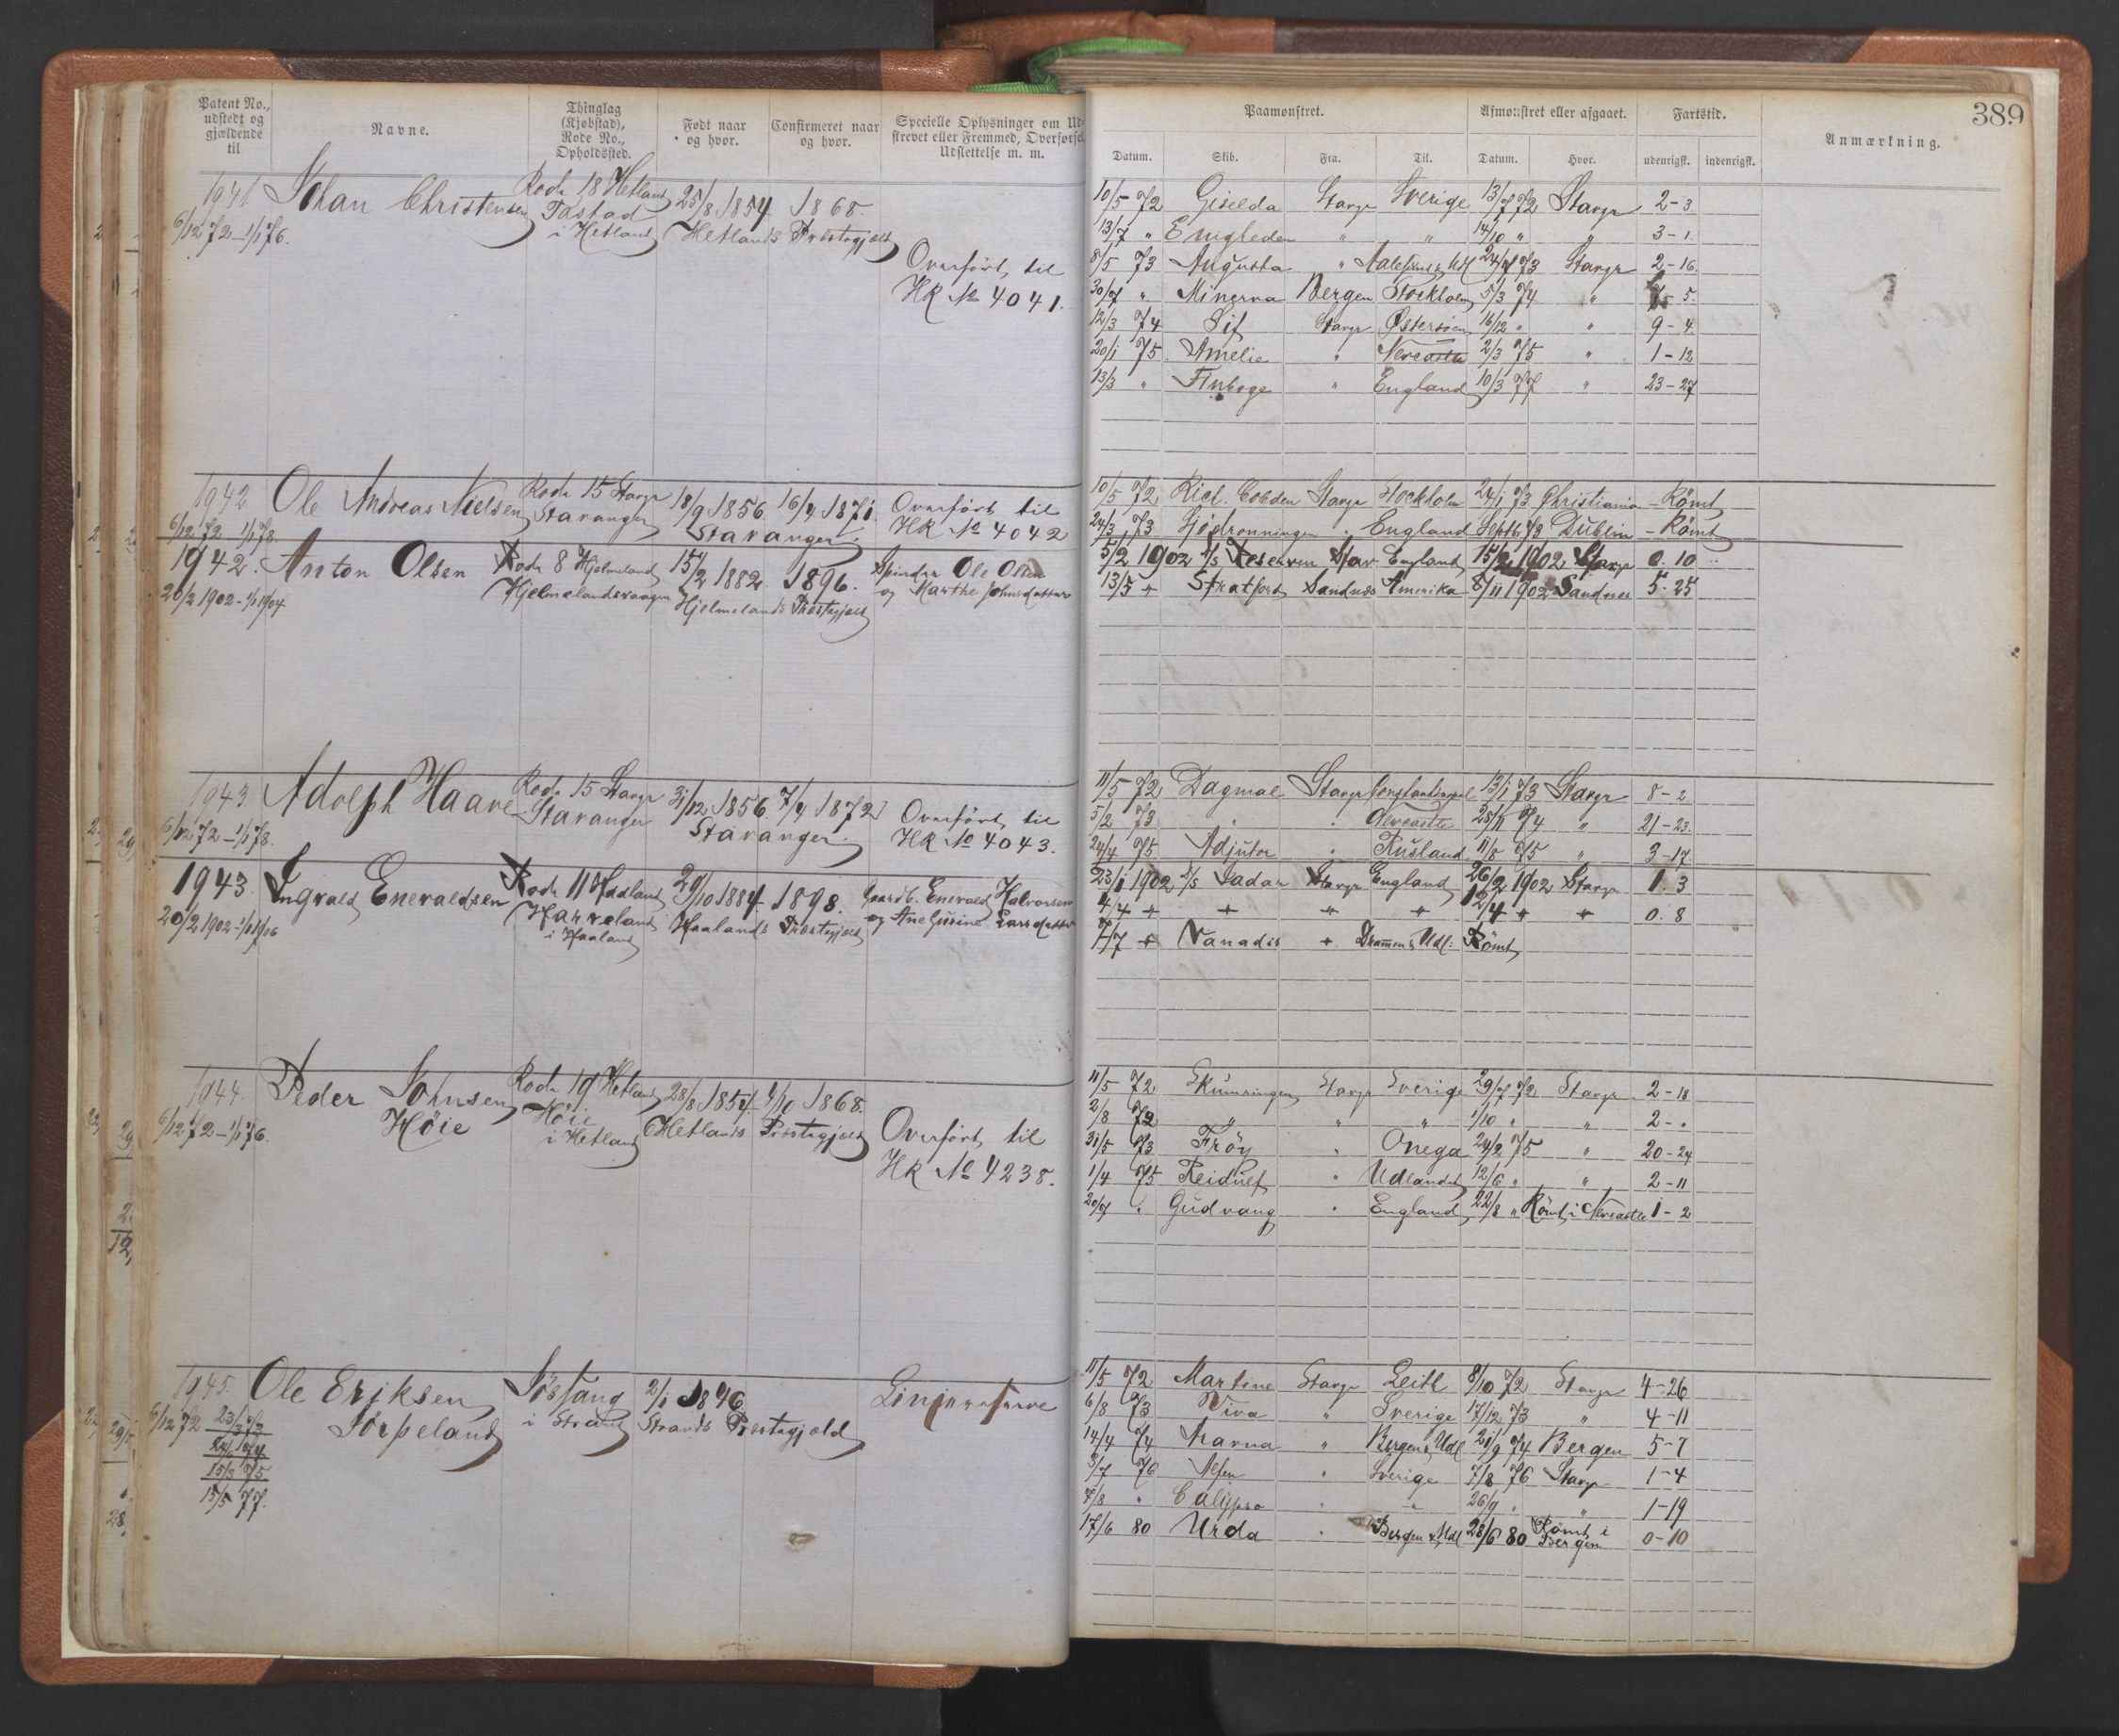 Patent No., udstedt og gjældende til
Navne.
Thinglag (Kjøbstad), Rode No., Opholdssted.
Født naar og hvor.
Confirmeret naar og hvor.
Specielle Oplysninger om Ud-
strevet eller Fremmed, Overførsel
Udslettelse m. m.
Paamønstret.
Afmønstret eller afgaaet.
Fartstid.
389
Anmærkning.
Datum. Skib. Fra. Til. Datum. Hvor. udenrigsk. indenrigsk.
1941. Johan Christensen Rode 18 Hetland 25/8 1854 1868.
6/12 72–1/1 76. Tastad i Hetland Hetlands Præstegjæld
Overført til
HK No 4041.
10/5 72 Giselda Stavgr Sverige 13/7 72 Stavgr 2-3
13/7 " Enigheden " " 14/10 " " 3-1.
8/5 73 Augusta " Aalesund & Udl 24/7 73 Stavgr 2-16.
30/7 " Minerva Bergen Stockholm 5/3 74 " 5.
12/3 74 Sif Stavgr Østersøen 16/12 " " 9-4.
20/1 75. Amelie " Newcastle 2/3 75 " 1-12
13/3 " Finboge " England 10/3 77 " 23-27
1942 Ole Andreas Nielsen Rode 15 Stavgr 18/9 1856. 16/4 1871. Overført til
6/12 72 1/1 78. Stavanger Stavanger HK No 4042
10/5 72 Rich. Cobden Stavgr Stockholm 24/1 73 Christiania - Römt
24/3 73 Sjödronningen " England Septbr 73 Dublin - Römt
1942. Anton Olsen Rode 8 Hjelmeland 15/2 1882. 1896. Ole Olsen
20/2 1902–1/1 1904 Hjelmelandsvaagen Hjelmelands Præstegjæld og Marthe Johnsdatter
5/2 1902 S/S Stav England 15/2 1902 Stavgr 0. 10
13/5 + Stratford Sandnæs Amerika 8/11 1902 Sandnes 5. 25
1943. Adolph Haave Rode 15 Stavgr 31/12 1856. 7/4 1872 Overført til
6/12 72–1/1 78. Stavanger Stavanger. HK No 4043.
11/5 72 Dagmar Stavgr Constantinopel 13/1 73 Stavgr 8-2
5/2 73 " " Newcastle 74 " 21-23.
24/4 75 Adjutor " Rusland 11/8 75 " 3-17
1943. Ingvald Enevaldsen Rode 11 Haaland 29/10 1884 1898. Gaardb. Enevald Halvorsen
20/2 1902–1/1 1906 Harveland i Haaland Haalands Præstegjæld og Ane Gurine Larsdatter
23/1 1902 S/S Jadar Stavgr England 26/2 1902 Stavgr 1. 3
4/4 + + + + 12/4 + + 0. 8
7/7 + Vanadis + Drammen & Udl: Römt
1944. Peder Johnsen Höie Rode 19 Hetland 28/8 1854 4/10 1868.
6/12 72–1/1 76. Höie i Hetland Hetlands Præstegjæld
Overført til
HK No 4238.
11/5 72 Skumringen Stavgr Sverige 29/7 72 Stavgr 2-18
2/8 72 " " " 1/10 " " 2-.
31/5 73 Fröy " Onega 24/2 75 " 20-24
1/4 75 Reidulf " Udlandet 12/6 " " 2-11
20/7 " Gudvang " England 22/8 " Römt i Newcastle 1-2
1945. Ole Eriksen Jörpeland i Strand 2/1 1846
6/12 72 23/3 73 Strands Præstegjæld
74
15/3 75
15/5 77.
11/5 72 Martine Stavgr Leith 8/10 72 Stavgr 4-26
6/8 73 Viva " Sverige 17/12 73 " 4-11
14/4 74 " Bergen & Udl 21/9 74 Bergen 5-7
3/7 76 Alfen " Sverige 7/8 76 Stavgr 1-4
7/8 " Calypso " " 26/9 " " 1-19
17/6 80 Urda " Bergen & Udl 28/6 80 Römt i Bergen 0-10